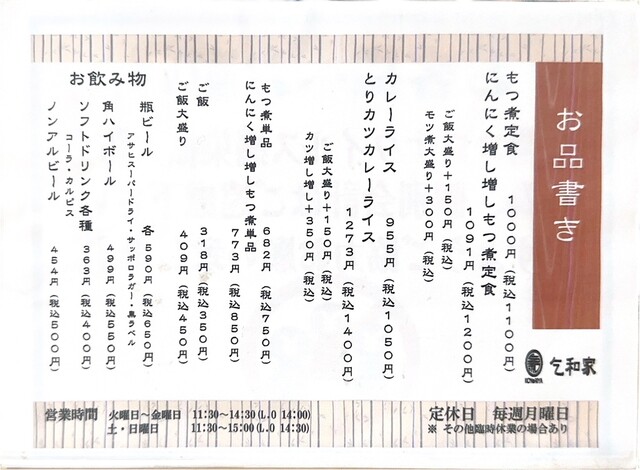 お品書き
もつ煮定食 1000円(税込1100円)
にんにく増し増しもつ煮定食
1091円(税込1200円)
ご飯大盛り+150円(税込)
モツ煮大盛り+300円(税込)
カレーライス 955円(税込1050円)
とりカツカレーライス
1273円(税込1400円)
ご飯大盛り+150円(税込)
カツ増し増し+350円(税込)
もつ煮単品 682円(税込750円)
にんにく増し増しもつ煮単品
773円(税込850円)
ご飯 318円(税込350円)
ご飯大盛り 409円(税込450円)
お飲み物
瓶ビール 各590円(税込650円)
アサヒスーパードライ・サッポロラガー・黒ラベル
角ハイボール 499円(税込550円)
ソフトドリンク各種 363円(税込400円)
コーラ・カルピス
ノンアルビール 454円(税込500円)
乞和家
KOWAYA
営業時間 火曜日~金曜日 11:30~14:30(L.O 14:00)
土・日曜日 11:30~15:00(L.O 14:30)
定休日 毎週月曜日
※ その他臨時休業の場合あり